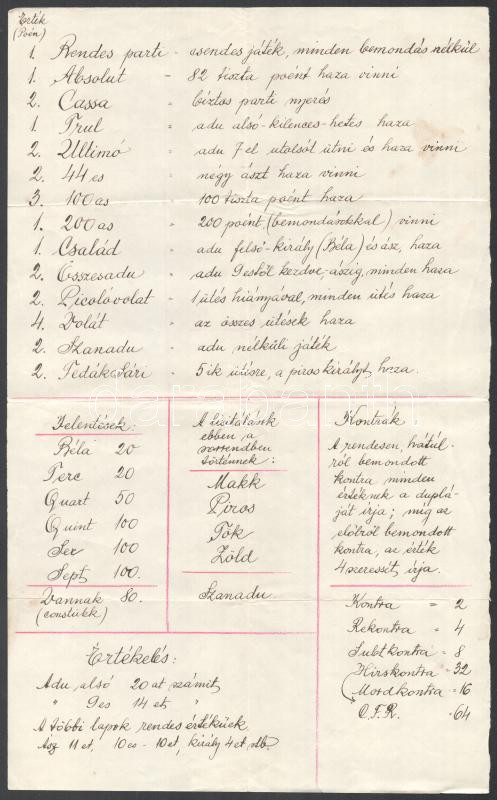 Érték
(Poén)
1. Rendes parti - csendes játék, minden bemondás nélkül
1. Absolut - 82 tiszta poént haza vinni
2. Cassa = biztos parti nyerés
1. Trul = adu alsó-kilences-hetes haza
2. Ultimó = adu 7el utolsót ütni és haza vinni
2. 44es = négy ászt haza vinni
3. 100as = 100 tiszta poént haza
1. 200as = 200 poént (bemondásokkal) vinni
1. Család = adu felső-király (Béla) és ász, haza
2. Összesadu = adu 9estől kezdve-ászig, minden haza
2. Picolóvolat - 1 ütés hiányával, minden ütés haza
4. Volát - az összes ütések haza
2. Szanadu = adu nélküli játék
2. Tedákosári - 5ik ütésre, a piros királyt haza.
Jelentések:
Béla 20
Terc 20
Quart 50
Quint 100
Sex 100
Sept 100.
Vannak 80.
A licitálásnk
ebben a
sorrendben
történnek:
Makk
Piros
Tök
Zöld
Szanadu.
Kontrák
A rendesen, hátul-
ról bemondott
kontra minden
értéknek a duplá-
ját írja; míg az
előlről bemondott
kontra, az érték
4szeresét írja.
Kontra = 2
Rekontra = 4
Subtkontra = 8
Hirskontra = 32
Mordkontra = 16
C.F.R. - 64
Értékelés:
Adu alsó 20at számít
" 9es 14et "
A többi lapok rendes értéküek.
Ász 11et, 10es - 10et, király 4et stb.